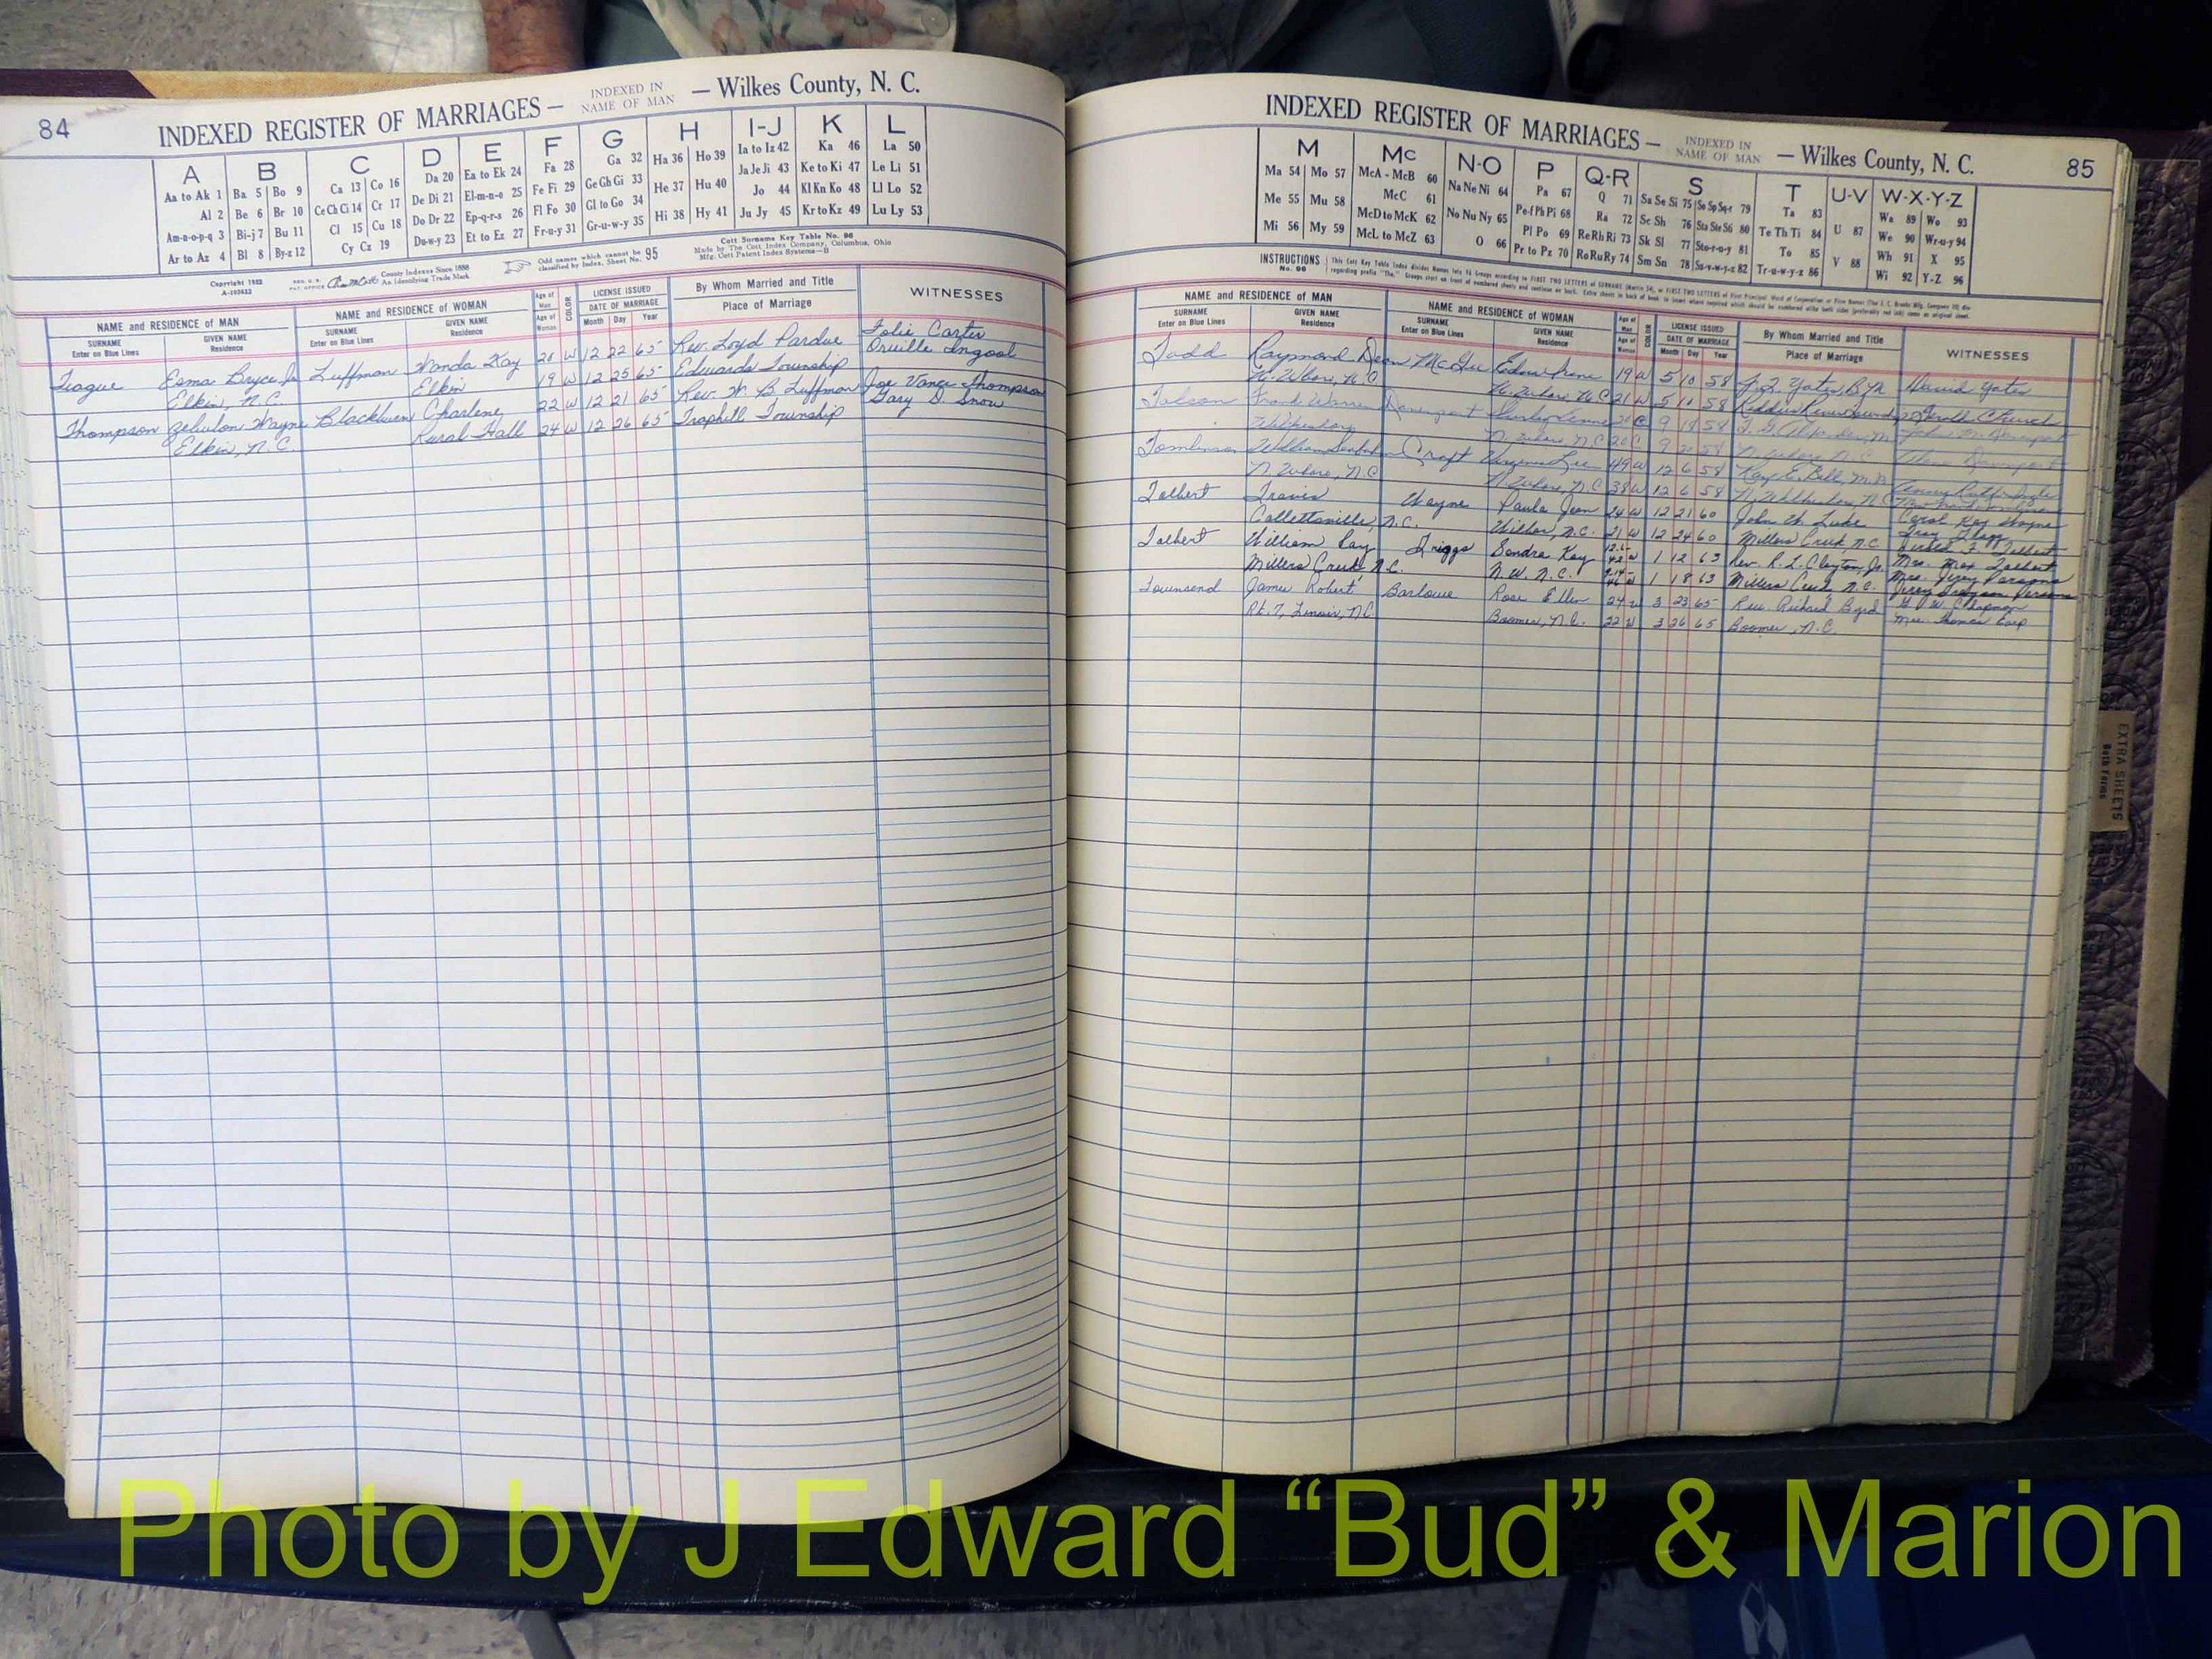 84
INDEXED REGISTER OF MARRIAGES — INDEXED IN NAME OF MAN — Wilkes County, N. C.
A B C D E F G H I-J K L
Aa to Ak 1 Ba 5 Bo 9 Ca 13 Co 16 Da 20 Ea to Ek 24 Fa 28 Ga 32 Ha 36 Ho 39 Ia to Iz 42 Ka 46 La 50
Al 2 Be 6 Br 10 Ce Ch Ci 14 Cr 17 De Di 21 El-m-n-o 25 Fe Fi 29 Ge Gh Gi 33 He 37 Hu 40 Ja Je Ji 43 Ke to Ki 47 Le Li 51
Am-n-o-p-q 3 Bi-j 7 Bu 11 Cl 15 Cu 18 Do Dr 22 Ep-q-r-s 26 Fl Fo 30 Gl to Go 34 Hi 38 Hy 41 Jo 44 Kl Kn Ko 48 Ll Lo 52
Ar to Az 4 Bl 8 By-z 12 Cy Cz 19 Du-w-y 23 Et to Ez 27 Fr-u-y 31 Gr-u-w-y 35 Ju Jy 45 Kr to Kz 49 Lu Ly 53
County Indexes Since 1888
An Identifying Trade Mark
Odd names which cannot be classified by Index, Sheet No. 95
Cott Surname Key Table No. 96
Made by The Cott Index Company, Columbus, Ohio
Mfg. Cott Patent Index Systems—B
NAME and RESIDENCE of MAN NAME and RESIDENCE of WOMAN Age of Man Age of Woman COLOR LICENSE ISSUED DATE OF MARRIAGE By Whom Married and Title WITNESSES
SURNAME Enter on Blue Lines GIVEN NAME Residence SURNAME Enter on Blue Lines GIVEN NAME Residence Month Day Year Place of Marriage
Teague Esma Bryce Jr Luffman Wanda Kay 20 W 12 22 65 Rev. Loyd Pardue Folie Carter
Elkin, N.C. Elkin 19 W 12 25 65 Edwards Township Orville
Thompson Zebulon Wayne Blackburn Charlene 22 W 12 21 65 Rev. W. B. Luffman Joe Vance Thompson
Elkin, N.C. Rural Hall 24 W 12 26 65 Traphill Township Gary D. Snow
INDEXED REGISTER OF MARRIAGES — INDEXED IN NAME OF MAN — Wilkes County, N. C. 85
M Mc N-O P Q-R S T U-V W-X-Y-Z
Ma 54 Mo 57 McA - McB 60 Na Ne Ni 64 Pa 67 Q 71 Sa Se Si 75 79 Ta 83 U 87 Wa 89 Wo 93
Me 55 Mu 58 McC 61 No Nu Ny 65 Pe-f Ph Pi 68 Ra 72 Sc Sh 76 Sta Ste Sti 80 Te Th Ti 84 V 88 We 90 Wr-u-y 94
Mi 56 My 59 McD to McK 62 O 66 Pl Po 69 Re Rh Ri 73 Sk Sl 77 Sto-r-u-y 81 To 85 Wh 91 X 95
McL to McZ 63 Pr to Pz 70 Ro Ru Ry 74 Sm Sn 78 Su-v-w-y-z 82 Tr-u-w-y-z 86 Wi 92 Y-Z 96
INSTRUCTIONS No. 96
NAME and RESIDENCE of MAN NAME and RESIDENCE of WOMAN Age of Man Age of Woman COLOR LICENSE ISSUED DATE OF MARRIAGE By Whom Married and Title WITNESSES
SURNAME Enter on Blue Lines GIVEN NAME Residence SURNAME Enter on Blue Lines GIVEN NAME Residence Month Day Year Place of Marriage
Todd Raymond Dean McGee Edna Irene 19 W 5 10 58 Yates David Yates
N. Wilkes, N.C. N. Wilkes, N.C. 21 W 5 11 58 Church
Frank Davenport 9 58
Wilkesboro N. Wilkes, N.C. 20 C 9 58 N. Wilkes, N.C. Davenport
Tomlinson William Craft Virginia Lee 49 W 12 6 58 Kay E. Bell
N. Wilkes, N.C. N. Wilkes, N.C. 38 W 12 6 58
Tolbert Travis Wayne Paula Jean 24 W 12 21 60 John W. Luke Carol Kay Wayne
Collettsville, N.C. Wilbar, N.C. 21 W 12 24 60 Millers Creek, N.C.
Tolbert William Ray Triggs Sandra Kay W 1 12 63 Rev. R. L. Clayton, Jr. Mrs. Max Tolbert
Millers Creek N.C. N.W. N.C. W 1 18 63 Millers Creek N.C. Mrs. Jerry Parsons
Townsend James Robert Barlowe Rose Ellen 24 W 3 23 65 Rev. Richard Byrd G. W. Chapman
Rt. 7, Lenoir, N.C. Boomer, N.C. 22 W 3 26 65 Boomer, N.C. Mrs. Thomas Earp
EXTRA SHEETS
Both Forms
Photo by J Edward “Bud” & Marion